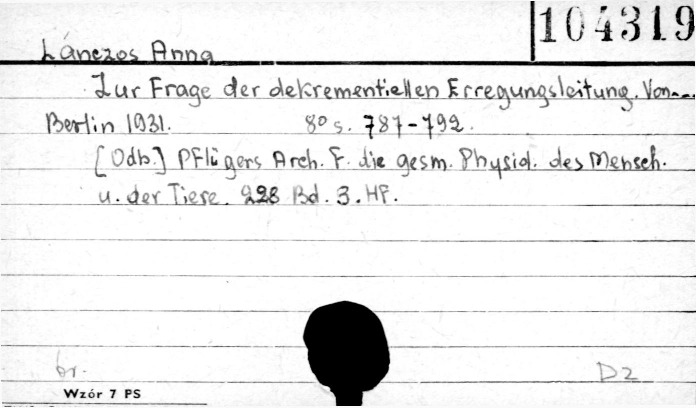 104319
Lánczos Anna
Zur Frage der dekrementiellen Erregungsleitung. Von...
Berlin 1931. 8° s. 787-792.
[Odb.] Pflügers Arch. f. die gesm. Physiol. des Mensch.
u. der Tiere. 228 Bd. 3. Hf.
br. D2
Wzór 7 PS